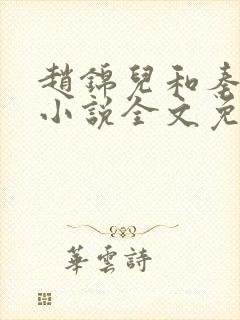 趙錦兒和秦
小說全文免
華雲詩